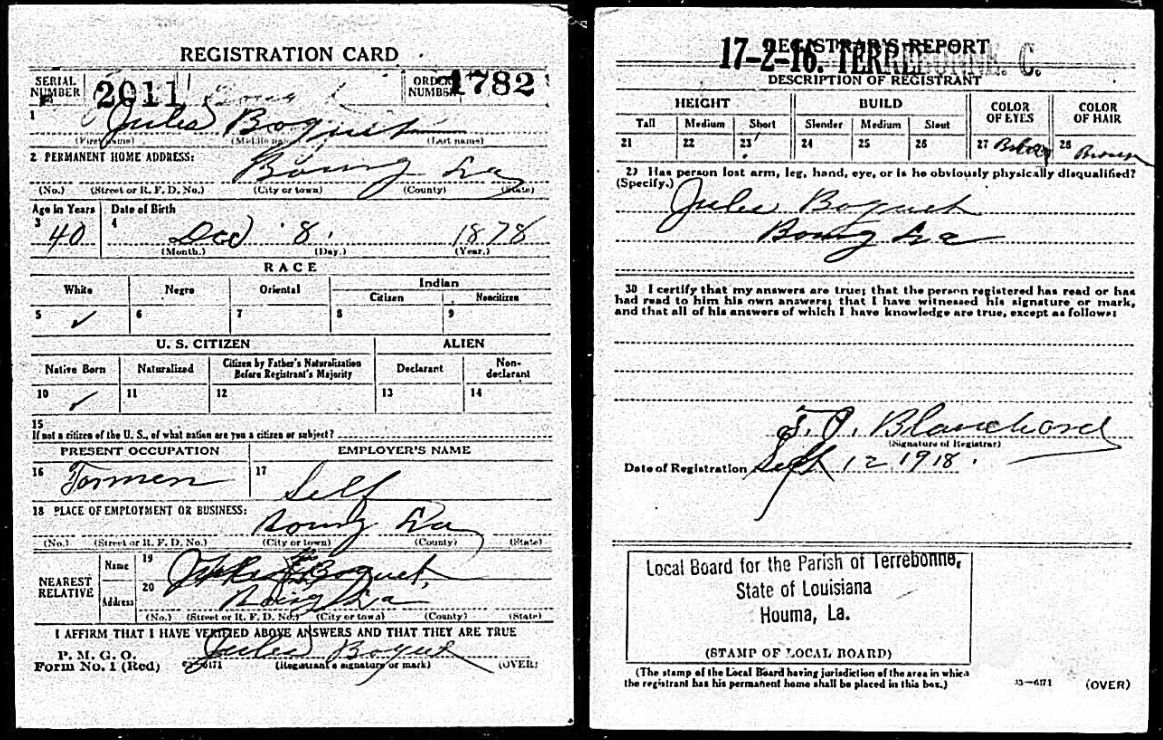 REGISTRATION CARD
SERIAL NUMBER 2011 ORDER NUMBER 1782
1 Jules Boquet
(First name) (Middle name) (Last name)
2 PERMANENT HOME ADDRESS:
Bourg La
(No.) (Street or R. F. D. No.) (City or town) (County) (State)
Age in Years Date of Birth
3 40 4 Dec 8. 1878
(Month.) (Day.) (Year.)
RACE
White Negro Oriental Indian
Citizen Noncitizen
5 ✓ 6 7 8 9
U. S. CITIZEN ALIEN
Native Born Naturalized Citizen by Father's Naturalization Before Registrant's Majority Declarant Non-declarant
10 ✓ 11 12 13 14
15
If not a citizen of the U. S., of what nation are you a citizen or subject?
PRESENT OCCUPATION EMPLOYER'S NAME
16 17 Self
18 PLACE OF EMPLOYMENT OR BUSINESS:
Bourg La
(No.) (Street or R. F. D. No.) (City or town) (County) (State)
NEAREST RELATIVE Name 19 Boquet
Address 20 Bourg La
(No.) (Street or R. F. D. No.) (City or town) (County) (State)
I AFFIRM THAT I HAVE VERIFIED ABOVE ANSWERS AND THAT THEY ARE TRUE
P. M. G. O.
Form No. 1 (Red) Jules Boquet
(Registrant's signature or mark) (OVER)
REGISTRAR'S REPORT
17-2-16. TERREBONNE. C.
DESCRIPTION OF REGISTRANT
HEIGHT BUILD COLOR OF EYES COLOR OF HAIR
Tall Medium Short Slender Medium Stout
21 22 23 24 25 26 27 28 Brown
29 Has person lost arm, leg, hand, eye, or is he obviously physically disqualified?
(Specify.)
Jules Boquet
Bourg La
30 I certify that my answers are true; that the person registered has read or has
had read to him his own answers; that I have witnessed his signature or mark,
and that all of his answers of which I have knowledge are true, except as follows:
Blanchard
(Signature of Registrar)
Date of Registration Sept 12 1918.
Local Board for the Parish of Terrebonne,
State of Louisiana
Houma, La.
(STAMP OF LOCAL BOARD)
(The stamp of the Local Board having jurisdiction of the area in which
the registrant has his permanent home shall be placed in this box.)
(OVER)